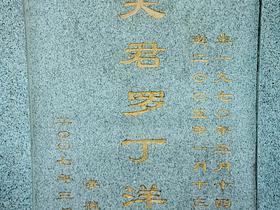 生一九七〇年三月十四
二〇〇五年一月十三
夫君罗丁洋
李
二〇〇七年三